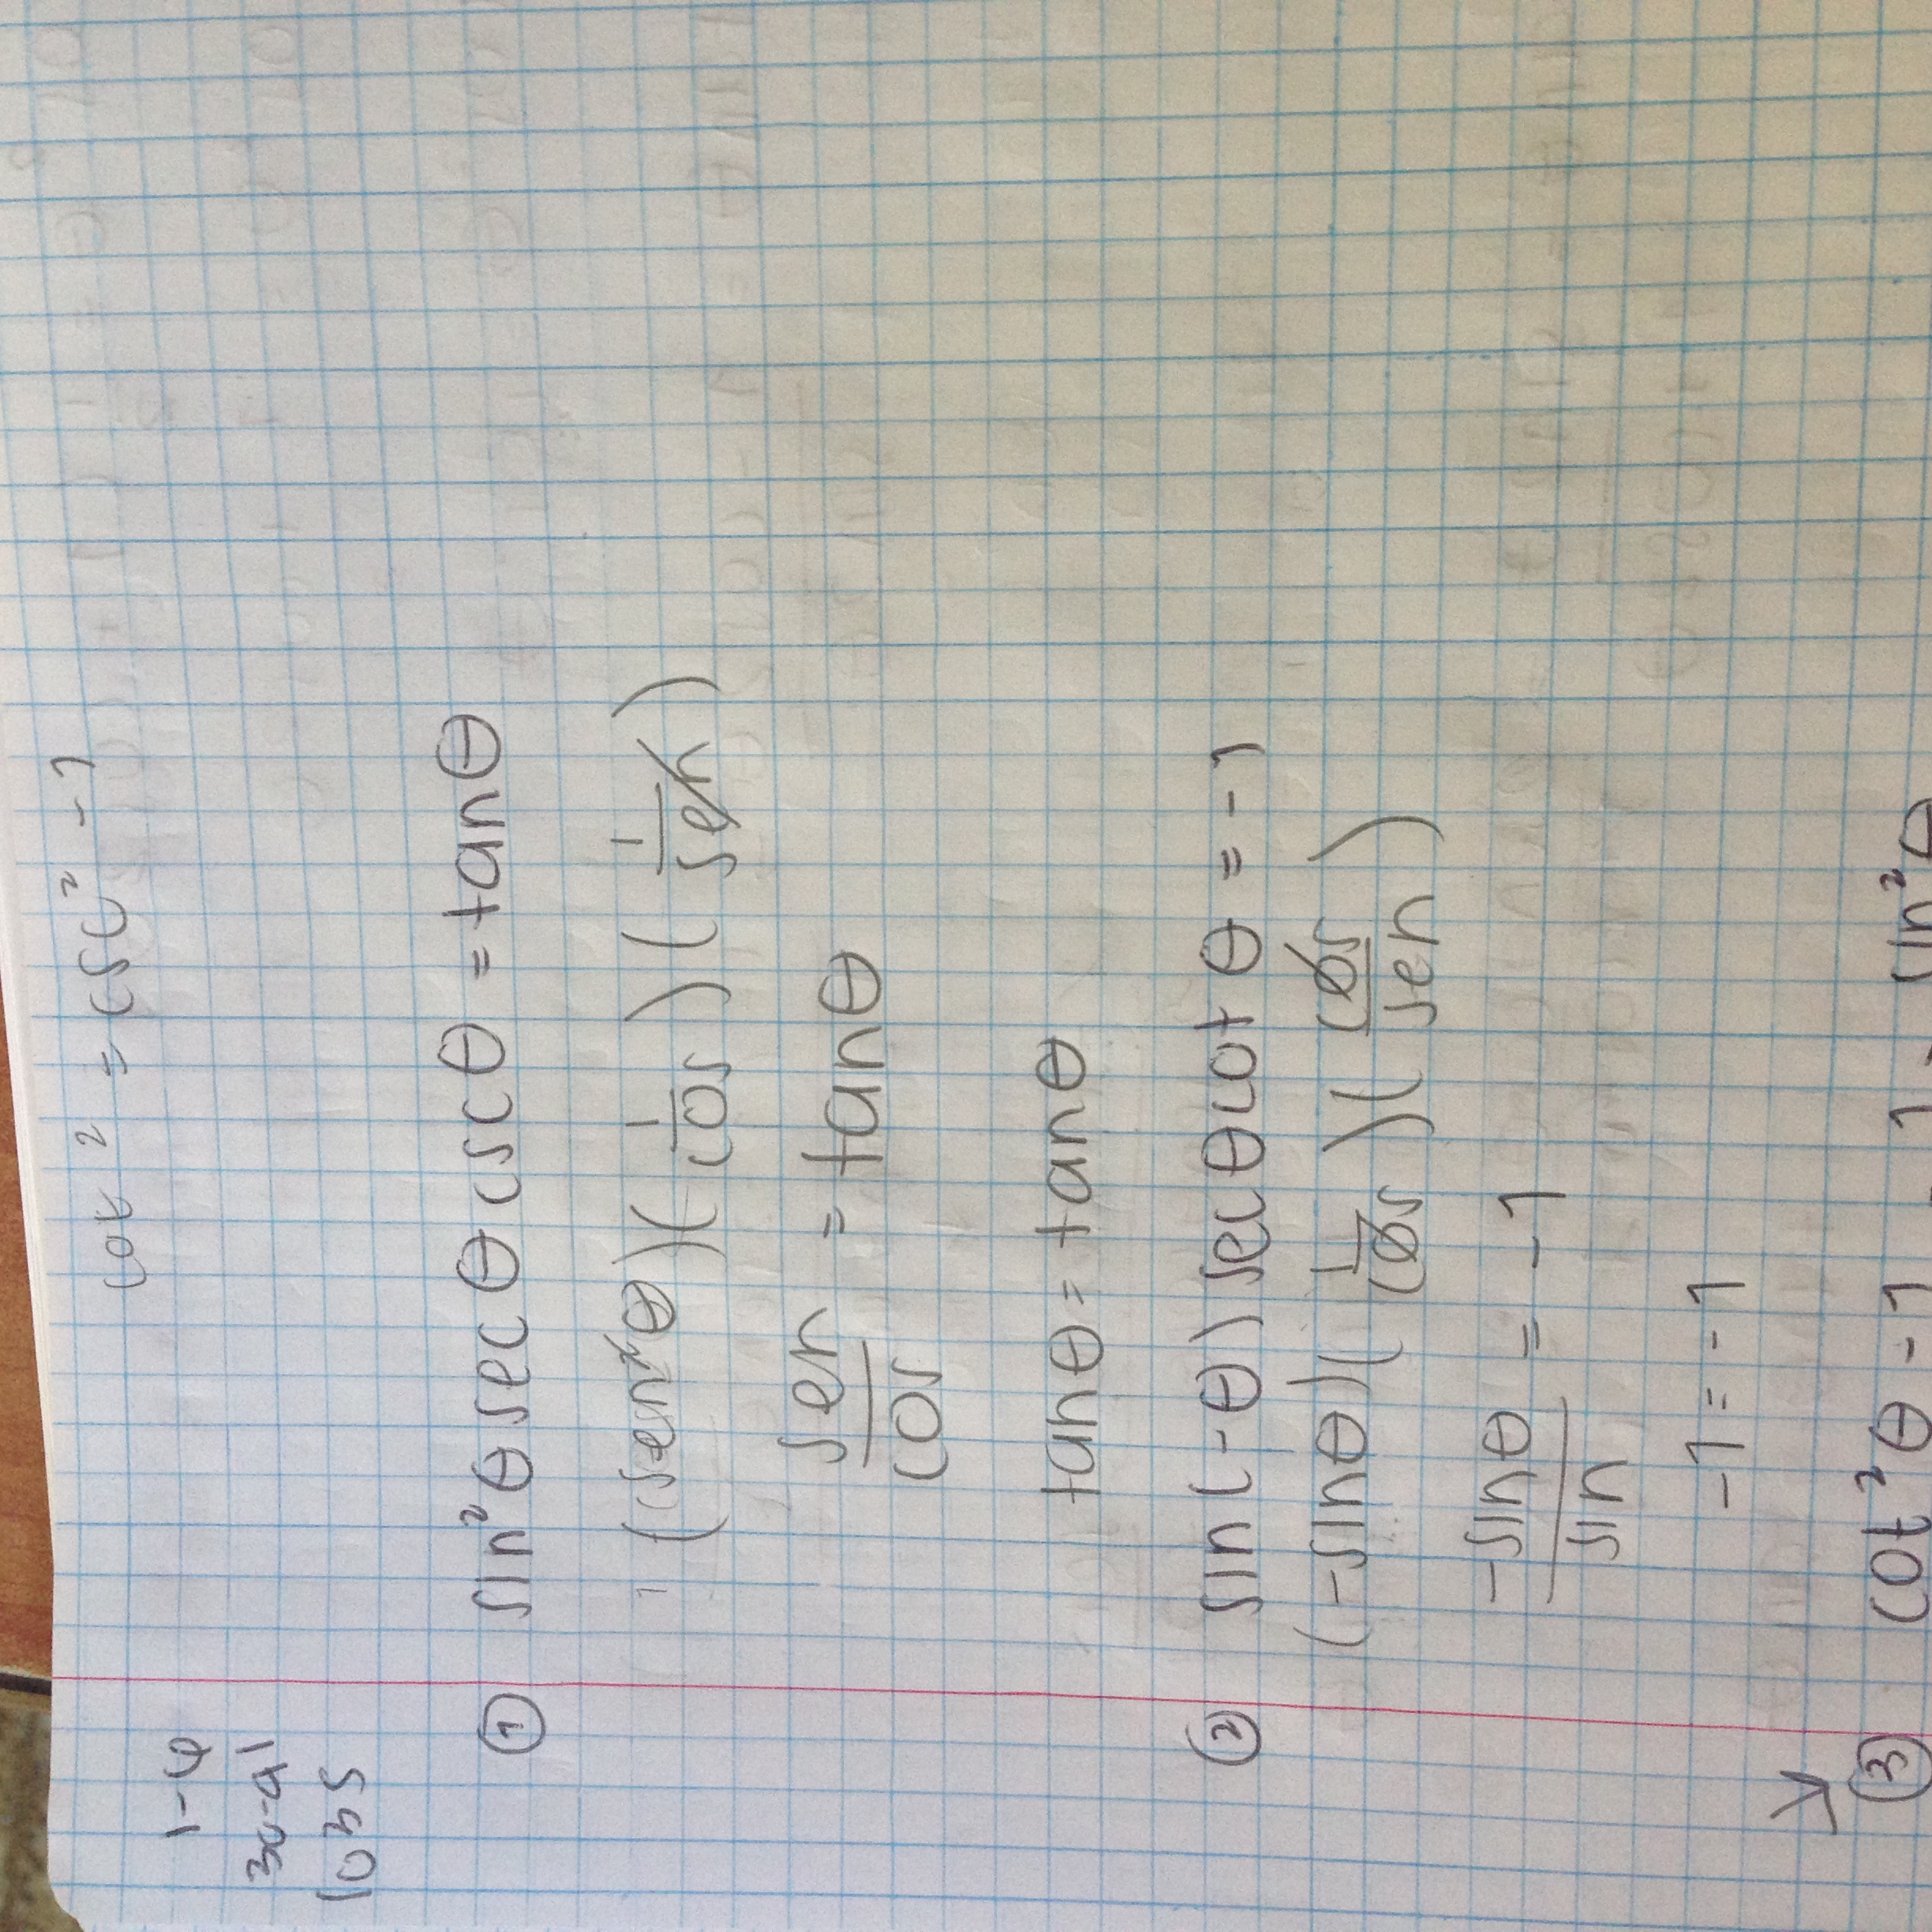 cot² = csc² - 1
1-4
30-a1
① sin²θ secθ cscθ = tanθ
(sen²θ)(1/cos)(1/sen)
sen/cos = tanθ
tanθ = tanθ
② sin(-θ) secθ cotθ = -1
(-sinθ)(1/cos)(cos/sen)
-sinθ/sin = -1
-1 = -1
③ cot²θ - 1